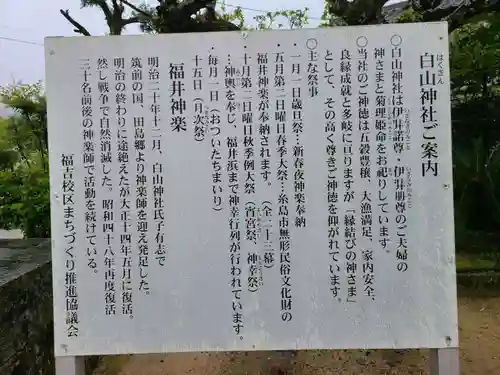 白山神社ご案内
はくさん
○白山神社は伊弉諾尊・伊弉册尊のご夫婦の
神さまと菊理姫命をお祀りしています。
○当社のご神徳は五穀豊穣、大漁満足、家内安全、
良縁成就と多岐に亘りますが「縁結びの神さま」
として、その高く尊きご神徳を仰がれています。
○主な祭事
一月一日歳旦祭・新春夜神楽奉納
五月第二日曜日春季大祭…糸島市無形民俗文化財の
福井神楽が奉納されます。(全二十三幕)
十月第二日曜日秋季例大祭(宵宮祭、神幸祭)
…神輿を奉じ、福井浜まで神幸行列が行われています。
毎月一日(おついたちまいり)
十五日(月次祭)
福井神楽
明治二十年十二月、白山神社氏子有志で
筑前の国、田島郷より神楽師を迎え発足した。
明治の終わりに途絶えたが大正十四年五月に復活。
然し戦争で自然消滅した。昭和四十八年再度復活
三十名前後の神楽師で活動を続けている。
福吉校区まちづくり推進協議会